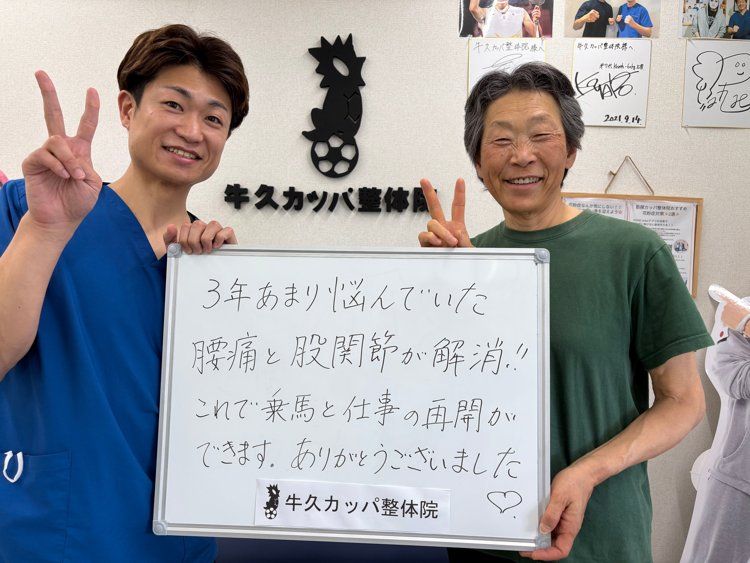 牛久カッパ整体院様へ
牛久カッパ整体院様へ
2021.9.14
牛久カッパ整体院
3年あまり悩んでいた
腰痛と股関節が解消!!
これで乗馬と仕事の再開が
できます。ありがとうございました
♡.
牛久カッパ整体院